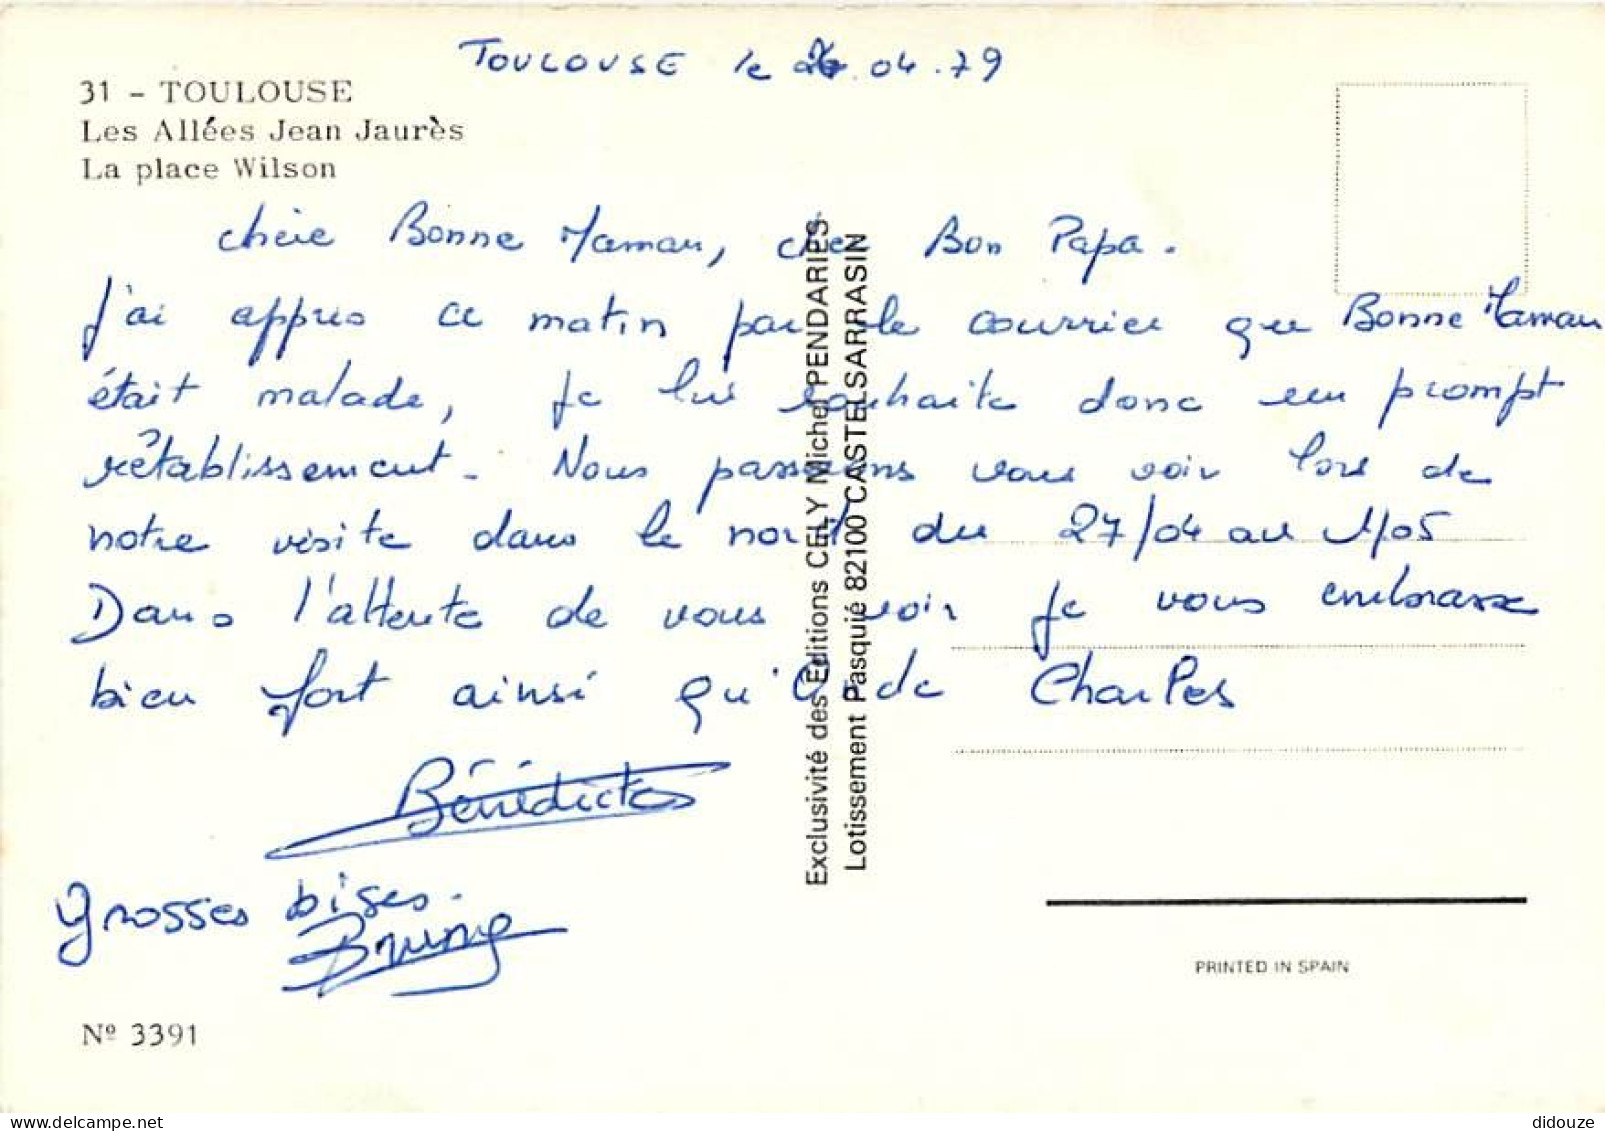 Toulouse le 04.79
31 - TOULOUSE
Les Allées Jean Jaurès
La place Wilson
chère Bonne Maman, cher Bon Papa.
J'ai appris ce matin par le courrier que Bonne Maman
était malade, je lui souhaite donc un prompt
rétablissement. Nous passerons vous voir lors de
notre visite dans le nord du 27/04 au 1/05
Dans l'attente de vous voir je vous embrasse
bien fort ainsi Charles
Bénédicte
grosses bises.
Bruno
Exclusivité des Editions CELY Michel PENDARIES
Lotissement Pasquié 82100 CASTELSARRASIN
PRINTED IN SPAIN
Nº 3391
delcampe.net
didouze